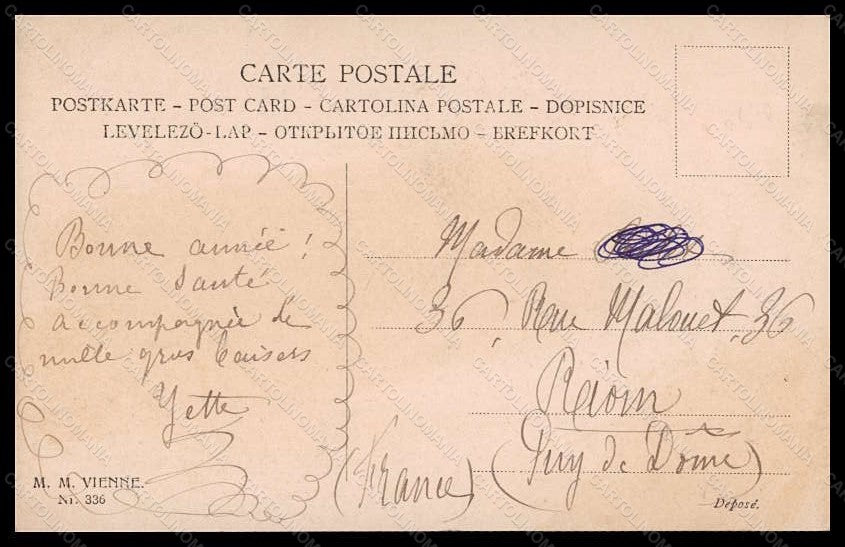 CARTE POSTALE
POSTKARTE – POST CARD – CARTOLINA POSTALE – DOPISNICE
LEVELEZÖ-LAP – ОТКРЫТОЕ ПИСЬМО – BREFKORT
Bonne année !
Bonne Santé
accompagnée de
mille gros baisers
Yette
M. M. VIENNE.
Nr. 336
Madame
36, Rue Malouet, 36
Riom
(Puy de Dôme)
(France)
Déposé.
CARTOLINOMANIA